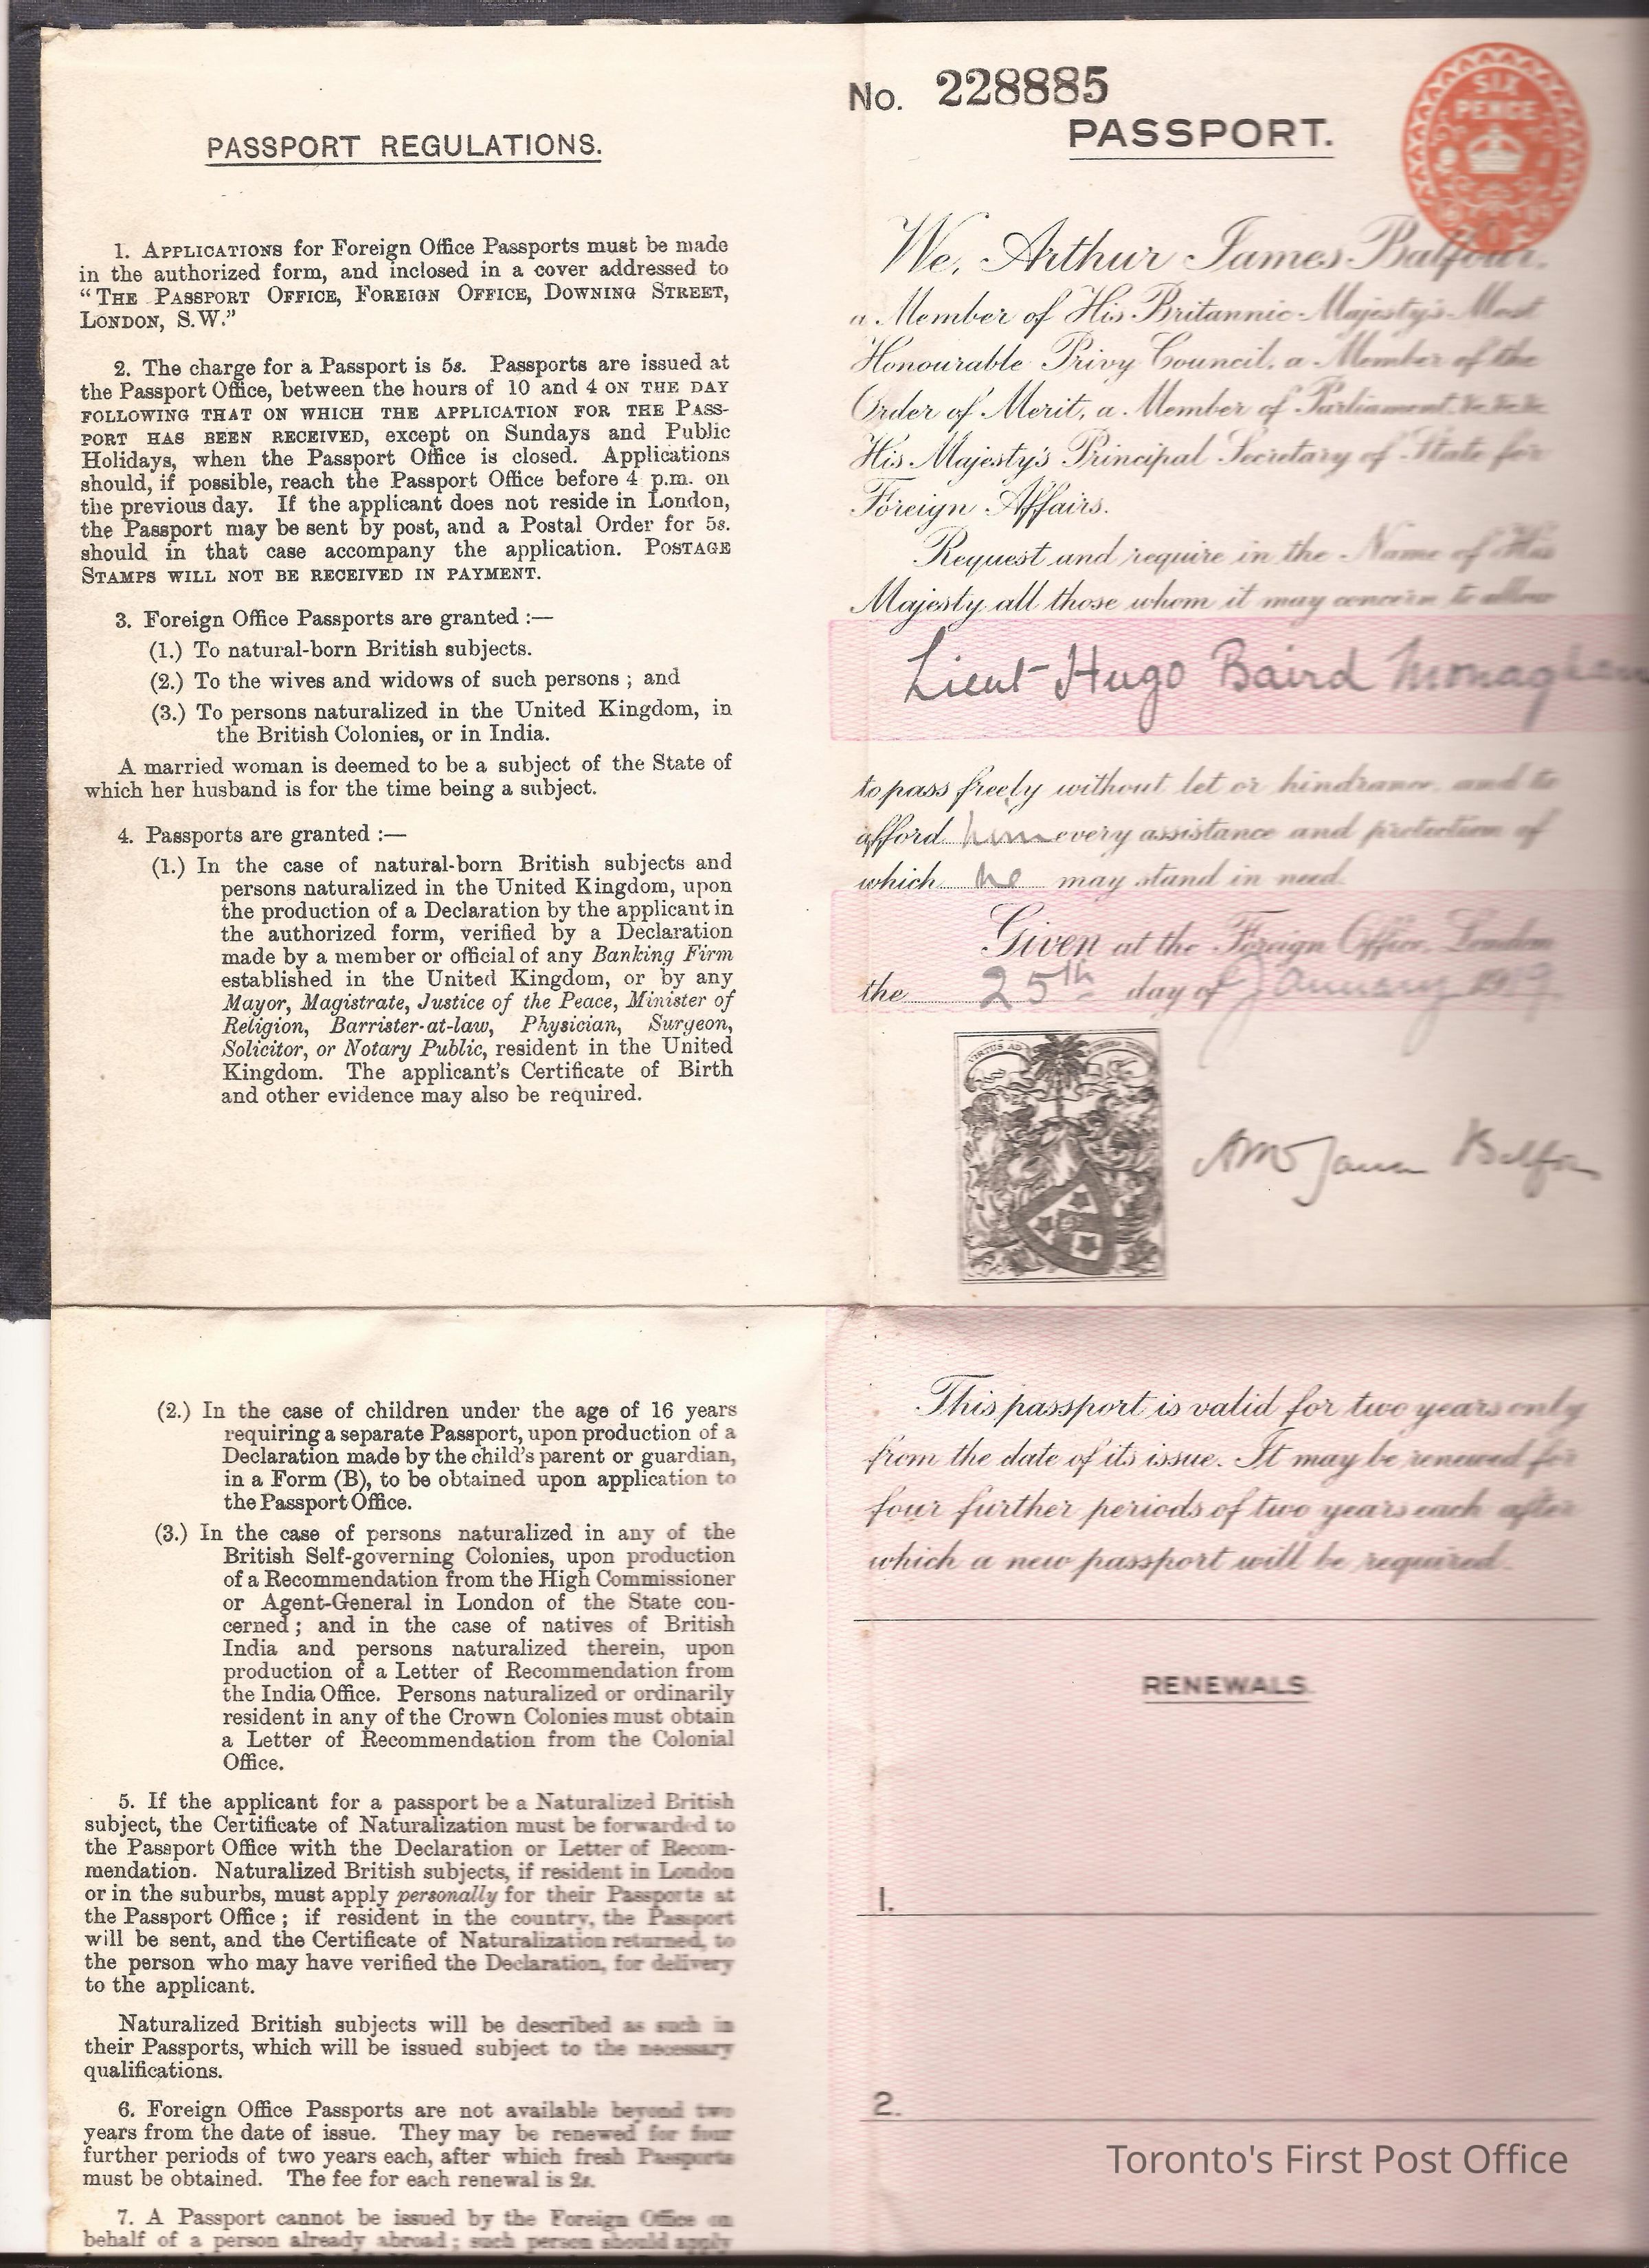 PASSPORT REGULATIONS.
1. APPLICATIONS for Foreign Office Passports must be made
in the authorized form, and inclosed in a cover addressed to
“THE PASSPORT OFFICE, FOREIGN OFFICE, DOWNING STREET,
LONDON, S.W.”
2. The charge for a Passport is 5s. Passports are issued at
the Passport Office, between the hours of 10 and 4 ON THE DAY
FOLLOWING THAT ON WHICH THE APPLICATION FOR THE PASS-
PORT HAS BEEN RECEIVED, except on Sundays and Public
Holidays, when the Passport Office is closed. Applications
should, if possible, reach the Passport Office before 4 p.m. on
the previous day. If the applicant does not reside in London,
the Passport may be sent by post, and a Postal Order for 5s.
should in that case accompany the application. POSTAGE
STAMPS WILL NOT BE RECEIVED IN PAYMENT.
3. Foreign Office Passports are granted :—
(1.) To natural-born British subjects.
(2.) To the wives and widows of such persons ; and
(3.) To persons naturalized in the United Kingdom, in
the British Colonies, or in India.
A married woman is deemed to be a subject of the State of
which her husband is for the time being a subject.
4. Passports are granted :—
(1.) In the case of natural-born British subjects and
persons naturalized in the United Kingdom, upon
the production of a Declaration by the applicant in
the authorized form, verified by a Declaration
made by a member or official of any Banking Firm
established in the United Kingdom, or by any
Mayor, Magistrate, Justice of the Peace, Minister of
Religion, Barrister-at-law, Physician, Surgeon,
Solicitor, or Notary Public, resident in the United
Kingdom. The applicant's Certificate of Birth
and other evidence may also be required.
(2.) In the case of children under the age of 16 years
requiring a separate Passport, upon production of a
Declaration made by the child's parent or guardian,
in a Form (B), to be obtained upon application to
the Passport Office.
(3.) In the case of persons naturalized in any of the
British Self-governing Colonies, upon production
of a Recommendation from the High Commissioner
or Agent-General in London of the State con-
cerned ; and in the case of natives of British
India and persons naturalized therein, upon
production of a Letter of Recommendation from
the India Office. Persons naturalized or ordinarily
resident in any of the Crown Colonies must obtain
a Letter of Recommendation from the Colonial
Office.
5. If the applicant for a passport be a Naturalized British
subject, the Certificate of Naturalization must be forwarded to
the Passport Office with the Declaration or Letter of Recom-
mendation. Naturalized British subjects, if resident in London
or in the suburbs, must apply personally for their Passports at
the Passport Office ; if resident in the country, the Passport
will be sent, and the Certificate of Naturalization returned, to
the person who may have verified the Declaration, for delivery
to the applicant.
Naturalized British subjects will be described as such in
their Passports, which will be issued subject to the necessary
qualifications.
6. Foreign Office Passports are not available beyond two
years from the date of issue. They may be renewed for four
further periods of two years each, after which fresh Passports
must be obtained. The fee for each renewal is 2s.
7. A Passport cannot be issued by the Foreign Office on
behalf of a person already abroad ; such person should apply
No. 228885
PASSPORT.
SIX
PENCE
We, Arthur James Balfour,
a Member of His Britannic Majesty's Most
Honourable Privy Council, a Member of the
Order of Merit, a Member of Parliament, &c. &c. &c.
His Majesty's Principal Secretary of State for
Foreign Affairs.
Request and require in the Name of His
Majesty all those whom it may concern to allow
Lieut Hugo Baird Monaghan
to pass freely without let or hindrance, and to
afford him every assistance and protection of
which he may stand in need.
Given at the Foreign Office, London
the 25th day of January 1919
VIRTUS AD
Balfour
This passport is valid for two years only
from the date of its issue. It may be renewed for
four further periods of two years each after
which a new passport will be required.
RENEWALS.
1.
2.
Toronto's First Post Office